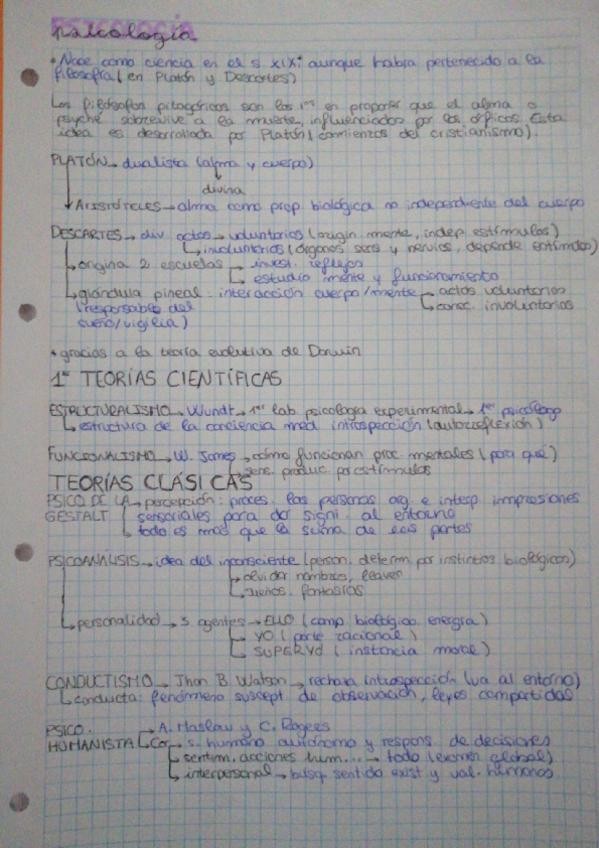 PSICOLOGÍA
psicología
• Nace como ciencia en el s XIX, aunque había pertenecido a la
filosofía (en Platón y Descartes)
Los filósofos pitagóricos son los 1os en proponer que el alma o
psyché sobrevive a la muerte, influenciados por los órficos. Esta
idea es desarrollada por Platón (comienzos del cristianismo).
PLATÓN → dualista (alma y cuerpo)
divina
ARISTÓTELES → alma como prop. biológica no independiente del cuerpo
DESCARTES → div. actos → voluntarios (origin. mente, indep. estímulos)
↳ involuntarios (órganos sens y nervios, depende estímulos)
↳ origina 2 escuelas → invest. reflejos
↳ estudio mente y funcionamiento
↳ glándula pineal: interacción cuerpo/mente → actos voluntarios
(responsable del ↳ conec. involuntarios
sueño/vigilia)
• gracias a la teoría evolutiva de Darwin
1as TEORÍAS CIENTÍFICAS
ESTRUCTURALISMO → Wundt → 1er lab. psicología experimental → 1er psicólogo
↳ estructura de la conciencia med. introspección (autorreflexión)
FUNCIONALISMO → W. James → cómo funcionan proc. mentales (para qué)
↳ sens. produc. por estímulos
TEORÍAS CLÁSICAS
PSICO DE LA → percepción: proces. las personas org. e interp. impresiones
GESTALT sensoriales para dar signi. al entorno
↳ todo es más que la suma de las partes
PSICOANÁLISIS → idea del inconsciente (person. determ. por instintos biológicos)
↳ olvidar nombres, llaves
↳ sueños, fantasías
↳ personalidad → 3 agentes → ELLO (comp. biológico, energía)
↳ YO (parte racional)
↳ SUPERYÓ (instancia moral)
CONDUCTISMO → Jhon B. Watson → rechaza introspección (va al entorno)
↳ conducta: fenómeno suscept. de observación, leyes compartidas
PSICO. → A. Maslow y C. Rogers
HUMANISTA → Car → s. humano autónomo y respons. de decisiones
↳ sentim. acciones hum... → todo (examen global)
↳ interpersonal → búsq. sentido exist. y val. humanos